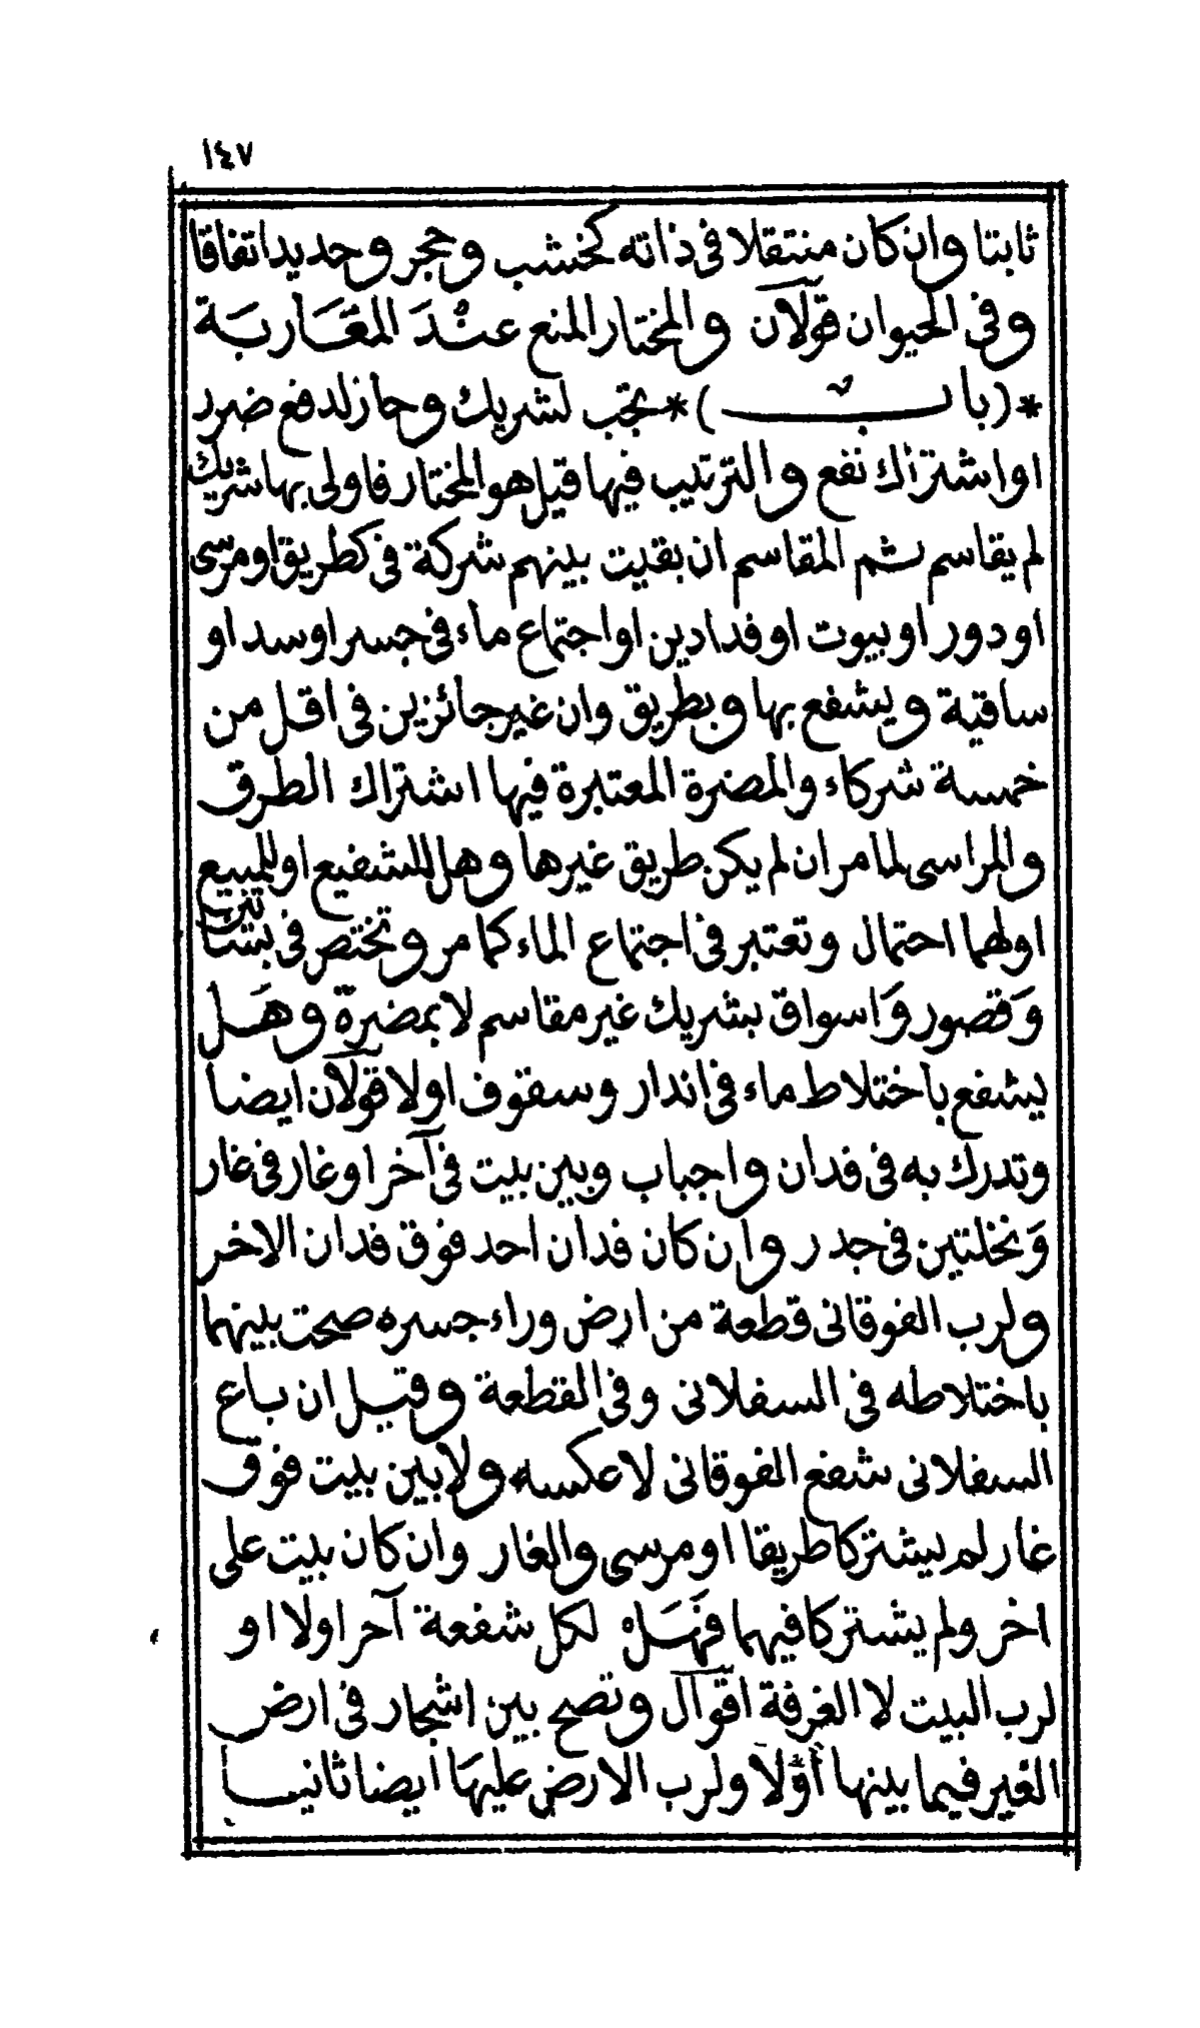 ١٤٧
ثابتا وان كان منتقلا فى ذاته كخشب وحجر وحديد اتفاقا
وفى الحيوان قولان والمختار المنع عنْدَ المَغَاربَة
*(باب)* تجب لشريك وجاز لدفع ضرر
او اشتراك نفع والترتيب فيها قيل هو المختار فاولى بها شريك
لم يقاسم ثم المقاسم ان بقيت بينهم شركة فى كطريق او مرسى
او دور او بيوت او فدادين او اجتماع ماء فى جسر او سد او
ساقية ويشفع بها وبطريق وان غير جائزين فى اقل من
خمسة شركاء والمضرة المعتبرة فيها اشتراك الطرق
والمراسى لما مر ان لم يكن طريق غيرها وهل للشفيع او للمبيع
او لهما احتمال وتعتبر فى اجتماع الماء كما مر وتختص فى
وَقصور وَاسواق بشريك غير مقاسم لا بمضرة وهَل
يشفع باختلاط ماء فى اندار وسقوف اولا قولان ايضا
وتدرك به فى فدان واجباب وبين بيت فى آخر او غار فى غار
وَنخلتين فى جدر وان كان فدان احد فوق فدان الاخر
ولرب الفوقانى قطعة من ارض وراء جسره صحت بينهما
باختلاطه فى السفلانى وفى القطعة وقيل ان باع
السفلانى شفع الفوقانى لا عكسه ولا بين بيت فوق
غار لم يشتركا طريقا او مرسى والغار وان كان بيت على
اخر ولم يشتركا فيهما فهَل لكل شفعة آخر اولا او
لرب البيت لا الغرفة اقوال وتصح بين اشجار فى ارض
الغير فيما بينها أوّلا ولرب الارض عليهَا ايضا ثانيا